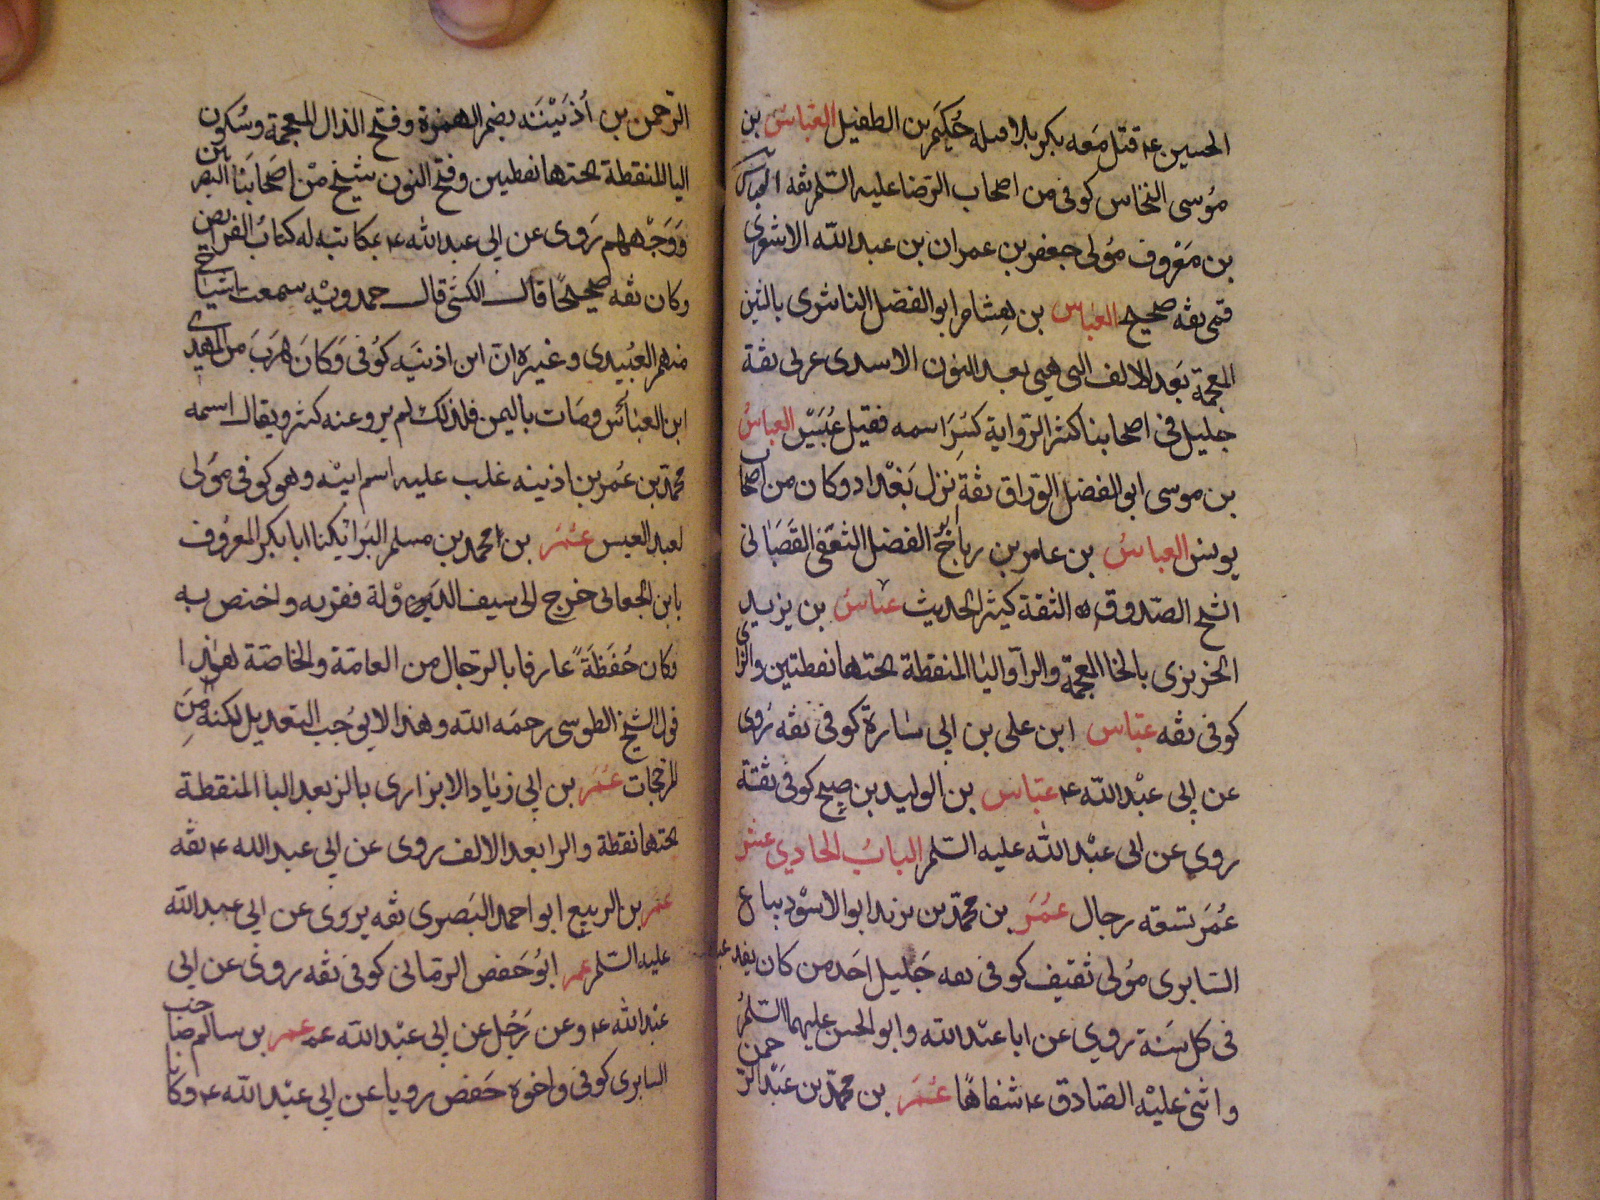 الحسين ع قتل معه بكربلا قبله حكيم بن الطفيل العباس بن
موسى النخاس كوفى من اصحاب الرضا عليه السلم ثقه العباس
بن معروف مولى جعفر بن عمران بن عبد الله الاشعرى
قمى ثقه صحيح العباس بن هشام ابو الفضل الناشرى بالشين
المعجمة بعد الالف التى هى بعد النون الاسدى عربى ثقة
جليل فى اصحابنا كثير الرواية كسر اسمه فقيل عبيس العباس
بن موسى ابو الفضل الوراق ثقة نزل بغداد وكان من اصحاب
يونس العباس بن عامر بن رباح الفضل الثقفى القصبانى
الشيخ الصدوق الثقة كثير الحديث عباس بن يزيد
الخريزى بالخا المعجمة والرآ واليا المنقطة تحتها نقطتين والزاى
كوفى ثقه عباس ابن على بن ابى سارة كوفى ثقه روى
عن ابى عبد الله ع عباس بن الوليد بن صبيح كوفى ثقة
روى عن ابى عبد الله عليه السلم الباب الحادى عشر
عمر تسعه رجال عمر بن محمد بن يزيد ابو الاسود بياع
السابرى مولى ثقيف كوفى ثقه جليل احد من كان يفد
فى كل سنة روى عن ابا عبد الله وابو الحسن عليهما السلم
واثنى عليه الصادق ع شفاها عمر بن محمد بن عبد الرحمن
الرحمن بن أذينه بضم الهمزة وفتح الذال المعجمة وسكون
اليا المنقطة تحتها نقطتين وفتح النون شيخ من اصحابنا البصريين
ووجههم روى عن ابى عبد الله ع بمكاتبه له كتاب الفرايض
وكان ثقه صحيحا قال الكشى قال حمدويه سمعت اشياخى
منهم العبيدى وغيره ان ابن اذنيه كوفى وكان هرب من المهدى
ابن العباس ومات باليمن فلذلك لم يرو عنه كثير ويقال اسمه
محمد بن عمر بن اذينه غلب عليه اسم ابيه وهو كوفى مولى
لعبد القيس عمر بن محمد بن مسلم البرا يكنا ابا بكر المعروف
بابن الجعابى خرج الى سيف الدولة فقربه واختص به
وكان حفظة عارفا بالرجال من العامة والخاصة لهذا
قول الشيخ الطوسى رحمه الله وهذا لا يوجب التعديل لكنه من
المرجحات عمر بن ابى زياد الابزارى بالز بعد البا المنقطة
تحتها نقطة والرا بعد الالف روى عن ابى عبد الله ع ثقه
عمر بن الربيع ابو احمد البصرى ثقه يروى عن ابى عبد الله
عليه السلم عمر ابو حفص الرمانى كوفى ثقه روى عن ابى
عبد الله ع وعن رجل عن ابى عبد الله ع عمر بن سالم صاحب
السابرى كوفى واخوه حفص رويا عن ابى عبد الله ع وكانا